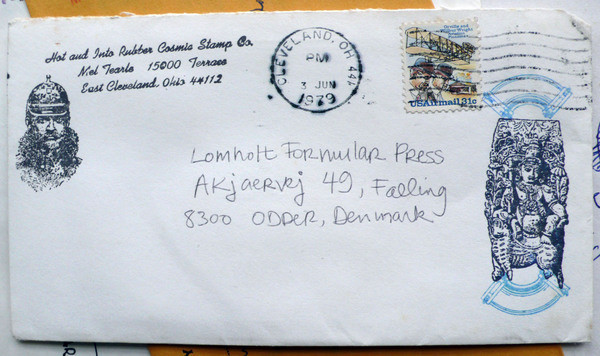 Hot and Into Rubber Cosmic Stamp Co.
N.el Tearle 15000 Terrace
East Cleveland, Ohio 44112
CLEVELAND, OH 441
PM
3 JUN
1979
Orville and
Wilbur Wright
Aviation
Pioneers
USAirmail 31c
Lomholt Formular Press
AKjaervej 49, Falling
8300 ODDER, Denmark